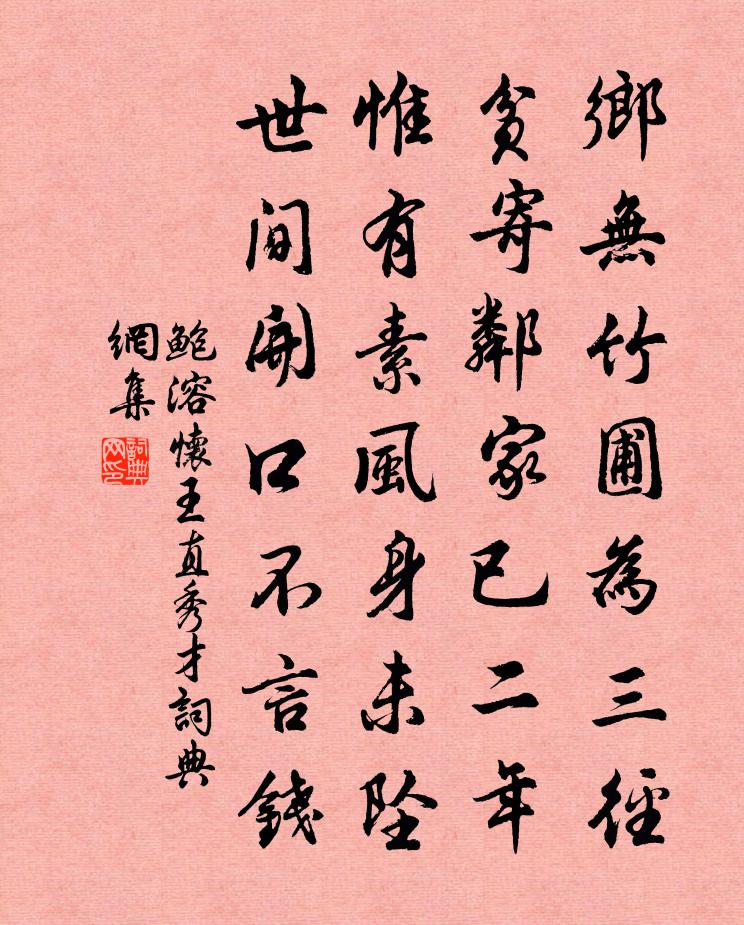 鄉無竹圃為三徑
貧寄鄰家已二年
惟有素風身未墜
世間開口不言錢
鮑溶懷王直秀才詞典
網集
詞典
网印